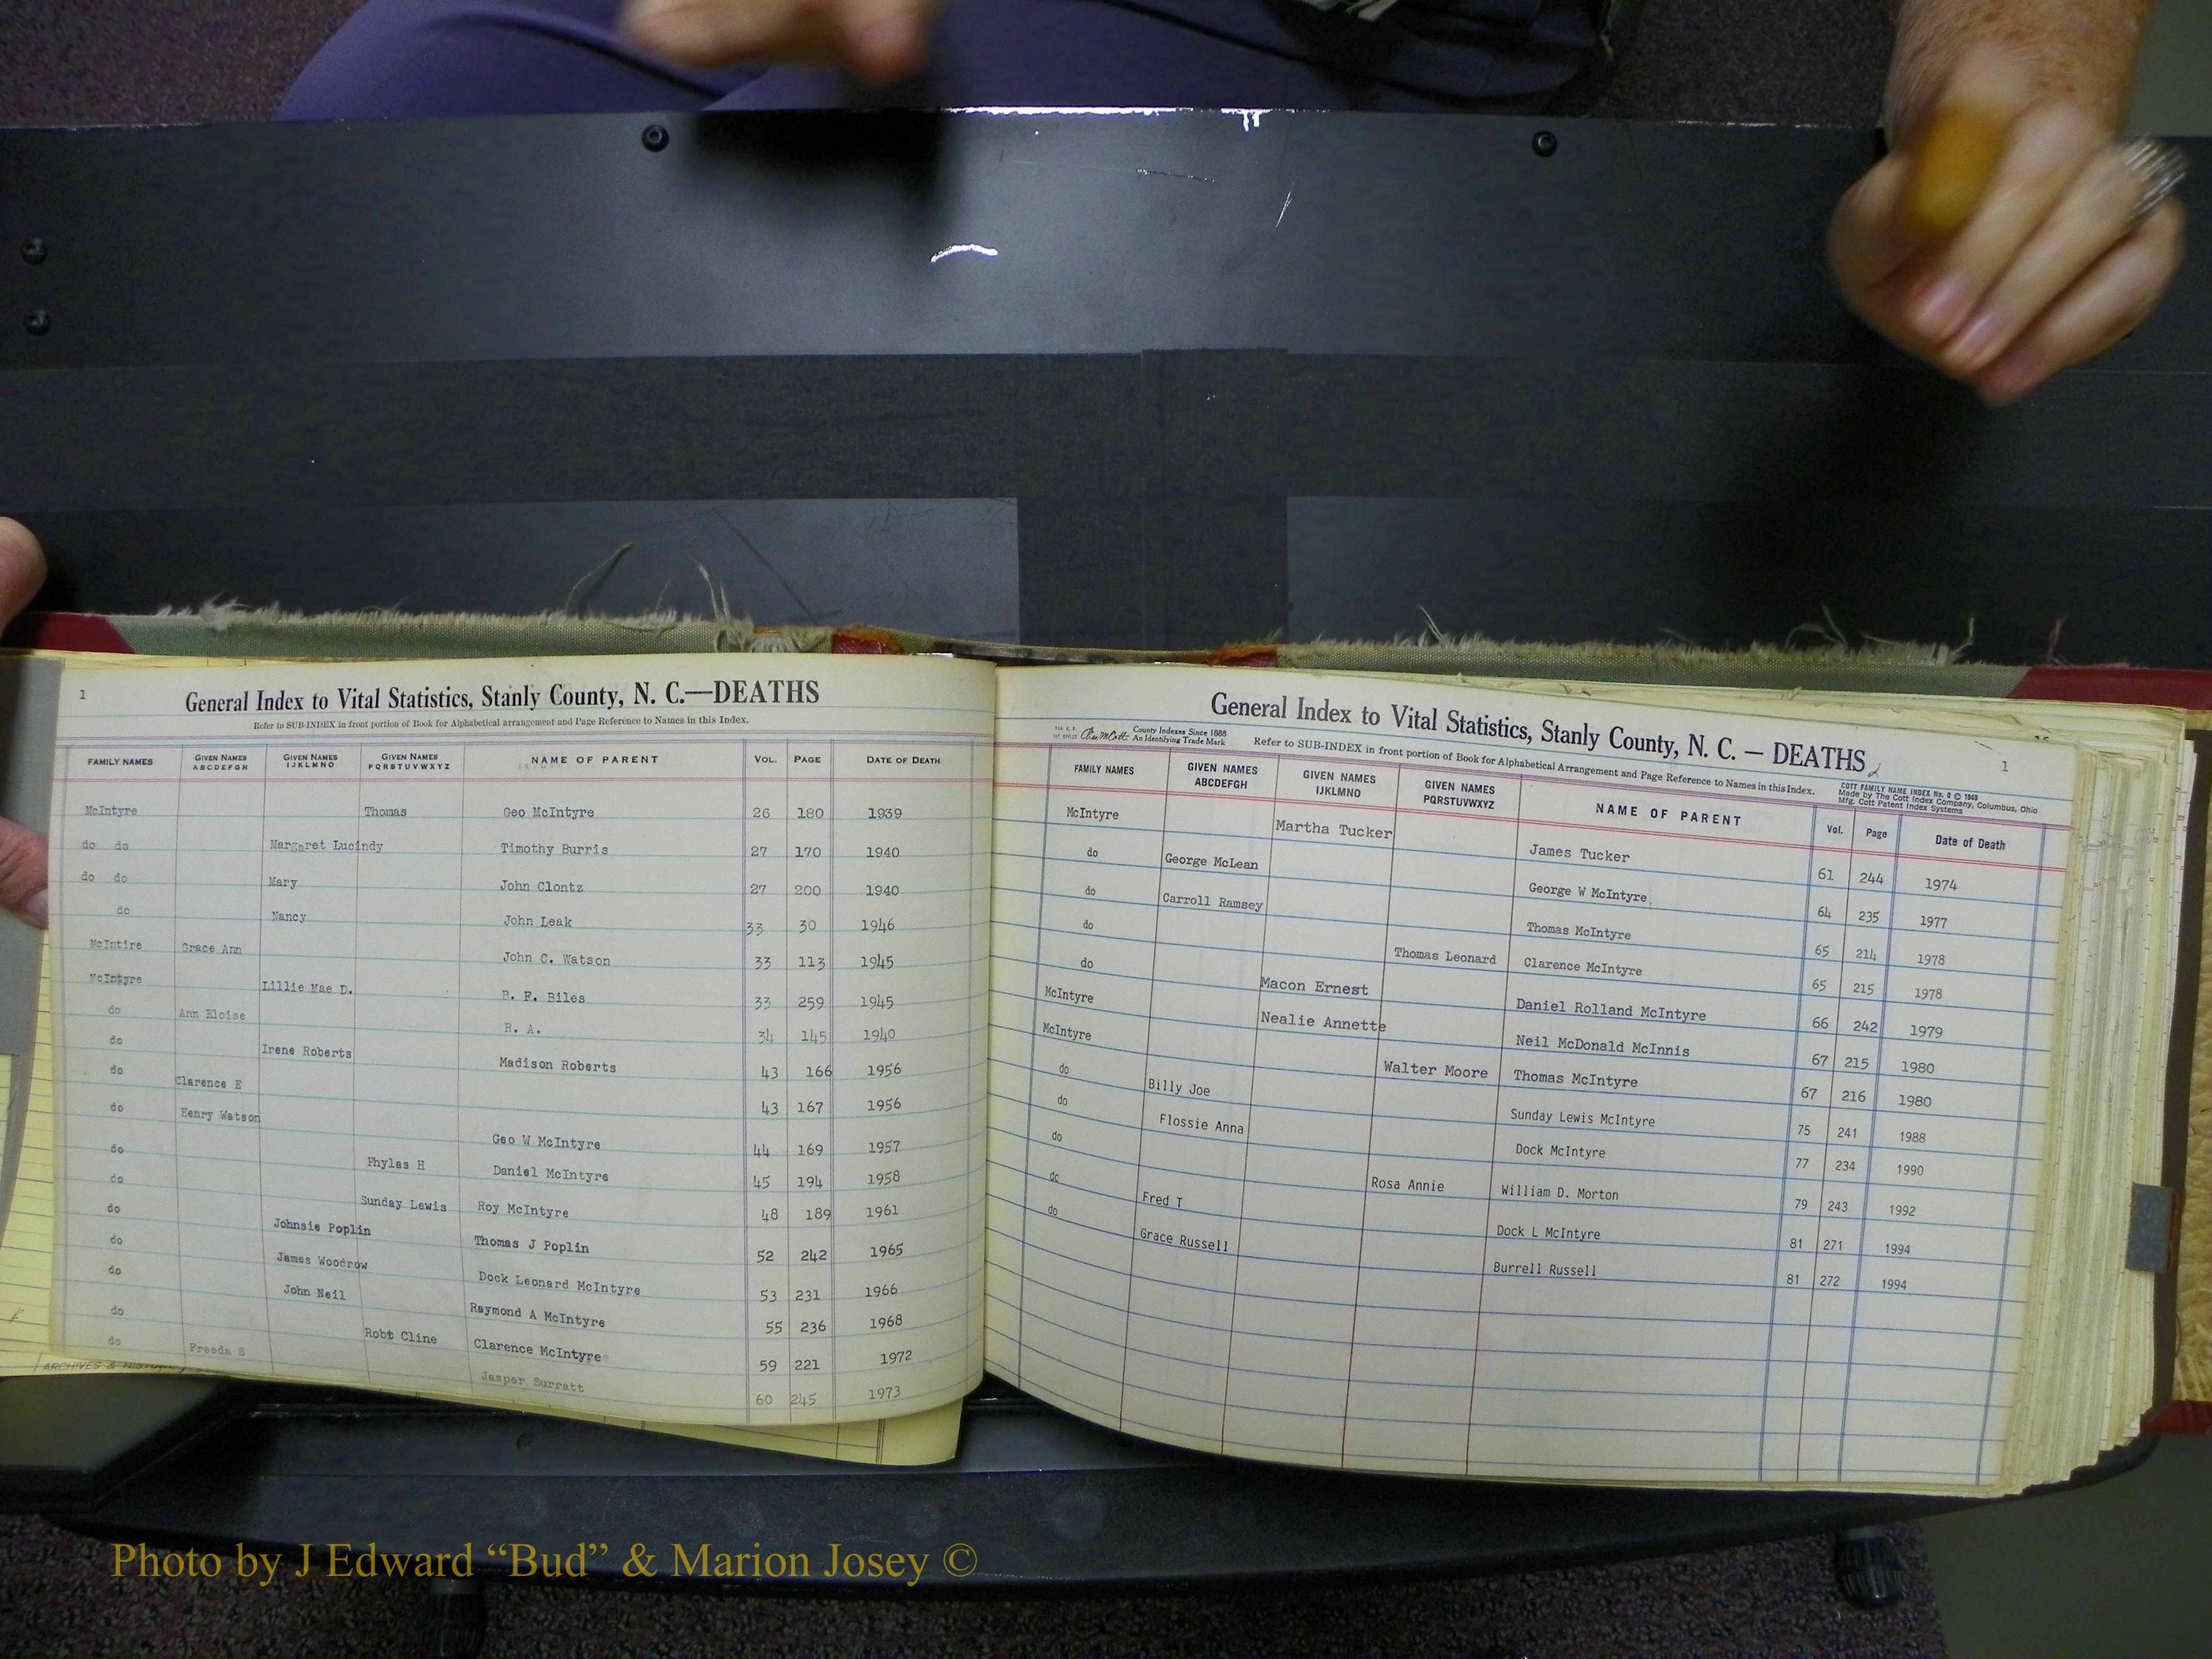 1
General Index to Vital Statistics, Stanly County, N. C.—DEATHS
Refer to SUB-INDEX in front portion of Book for Alphabetical arrangement and Page Reference to Names in this Index.
FAMILY NAMES GIVEN NAMES ABCDEFGH GIVEN NAMES IJKLMNO GIVEN NAMES PQRSTUVWXYZ NAME OF PARENT VOL. PAGE DATE OF DEATH
McIntyre Thomas Geo McIntyre 26 180 1939
do do Margaret Lucindy Timothy Burris 27 170 1940
do do Mary John Clontz 27 200 1940
do Nancy John Leak 33 30 1946
McIntire Grace Ann John C. Watson 33 113 1945
McIntyre Lillie Mae D. B. F. Biles 33 259 1945
do Ann Eloise R. A. 34 145 1940
do Irene Roberts Madison Roberts 43 166 1956
do Clarence E 43 167 1956
do Henry Watson Geo W McIntyre 44 169 1957
do Phylas H Daniel McIntyre 45 194 1958
do Sunday Lewis Roy McIntyre 48 189 1961
do Johnsie Poplin Thomas J Poplin 52 242 1965
do James Woodrow Dock Leonard McIntyre 53 231 1966
do John Neil Raymond A McIntyre 55 236 1968
do Robt Cline Clarence McIntyre 59 221 1972
do Freeda S Jasper Surratt 60 245 1973
ARCHIVES &
General Index to Vital Statistics, Stanly County, N. C. — DEATHS
2
1
County Indexes Since 1888
An Identifying Trade Mark
Refer to SUB-INDEX in front portion of Book for Alphabetical Arrangement and Page Reference to Names in this Index.
COTT FAMILY NAME INDEX No. 9 © 1949
Made by The Cott Index Company, Columbus, Ohio
Mfg. Cott Patent Index Systems
FAMILY NAMES GIVEN NAMES ABCDEFGH GIVEN NAMES IJKLMNO GIVEN NAMES PQRSTUVWXYZ NAME OF PARENT Vol. Page Date of Death
McIntyre Martha Tucker James Tucker 61 244 1974
do George McLean George W McIntyre 64 235 1977
do Carroll Ramsey Thomas McIntyre 65 214 1978
do Thomas Leonard Clarence McIntyre 65 215 1978
do Macon Ernest Daniel Rolland McIntyre 66 242 1979
McIntyre Nealie Annette Neil McDonald McInnis 67 215 1980
McIntyre Walter Moore Thomas McIntyre 67 216 1980
do Billy Joe Sunday Lewis McIntyre 75 241 1988
do Flossie Anna Dock McIntyre 77 234 1990
do Rosa Annie William D. Morton 79 243 1992
do Fred T Dock L McIntyre 81 271 1994
do Grace Russell Burrell Russell 81 272 1994
Photo by J Edward “Bud” & Marion Josey ©